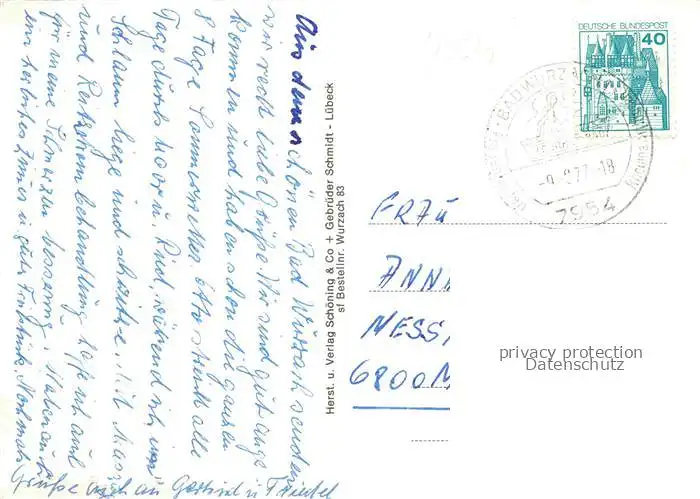 Aus dem schönen Bad Wurzach senden
wir recht liebe Grüße. Wir sind gut ange
kommen und haben schon die ganzen
8 Tage Sommerwetter. Otto streift alle
Tage durchs Moor u. Ried, während ich im
Schlamm liege und schwitze. Mit Massage
und Reiztrombehandlung hoffe ich auf
für meine Schmerzen besserung. Haben auch
ein herrliches Zimmer u. gutes Frühstück. Nochmals
Grüße auch an Gertrud u. Friedel
Herst. u. Verlag Schöning & Co + Gebrüder Schmidt - Lübeck
sf Bestellnr. Wurzach 83
DEUTSCHE BUNDESPOST
40
BAD WURZACH
77-18
7954
FRAU
ANN
MESS
6800 M
privacy protection
Datenschutz